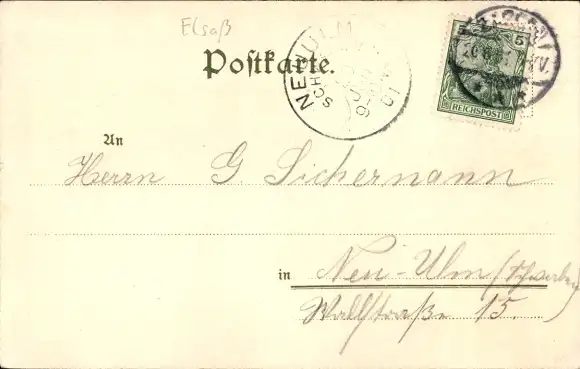 Elsaß
Postkarte.
NEU-ULM
9-10
01
5
REICHSPOST
An
Herrn G. Sichermann
in Neu-Ulm
Wallstraße 15.